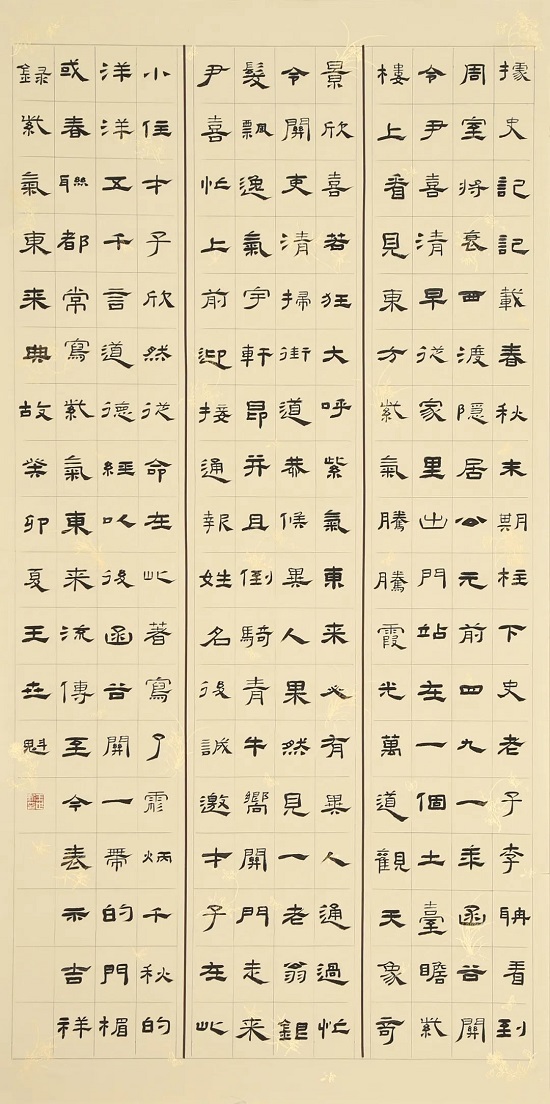 據史記記載春秋末期柱下史老子李聃看到
周室將衰西渡隱居公元前四九一年函谷關
令尹喜清早從家里出門站在一個土臺瞻紫
樓上看見東方紫氣騰騰霞光萬道觀天象奇
景欣喜若狂大呼紫氣東来必有異人通過忙
令關吏清掃街道恭候異人果然見一老翁銀
髮飄逸氣宇軒昂并且倒騎青牛嚮關門走来
尹喜忙上前迎接通報姓名後誠邀才子在此
小住才子欣然從命在此著寫了彪炳千秋的
洋洋五千言道德經以後函谷關一帶的門楣
或春聯都常寫紫氣東来流傳至今表示吉祥
録紫氣東来典故癸卯夏王世魁